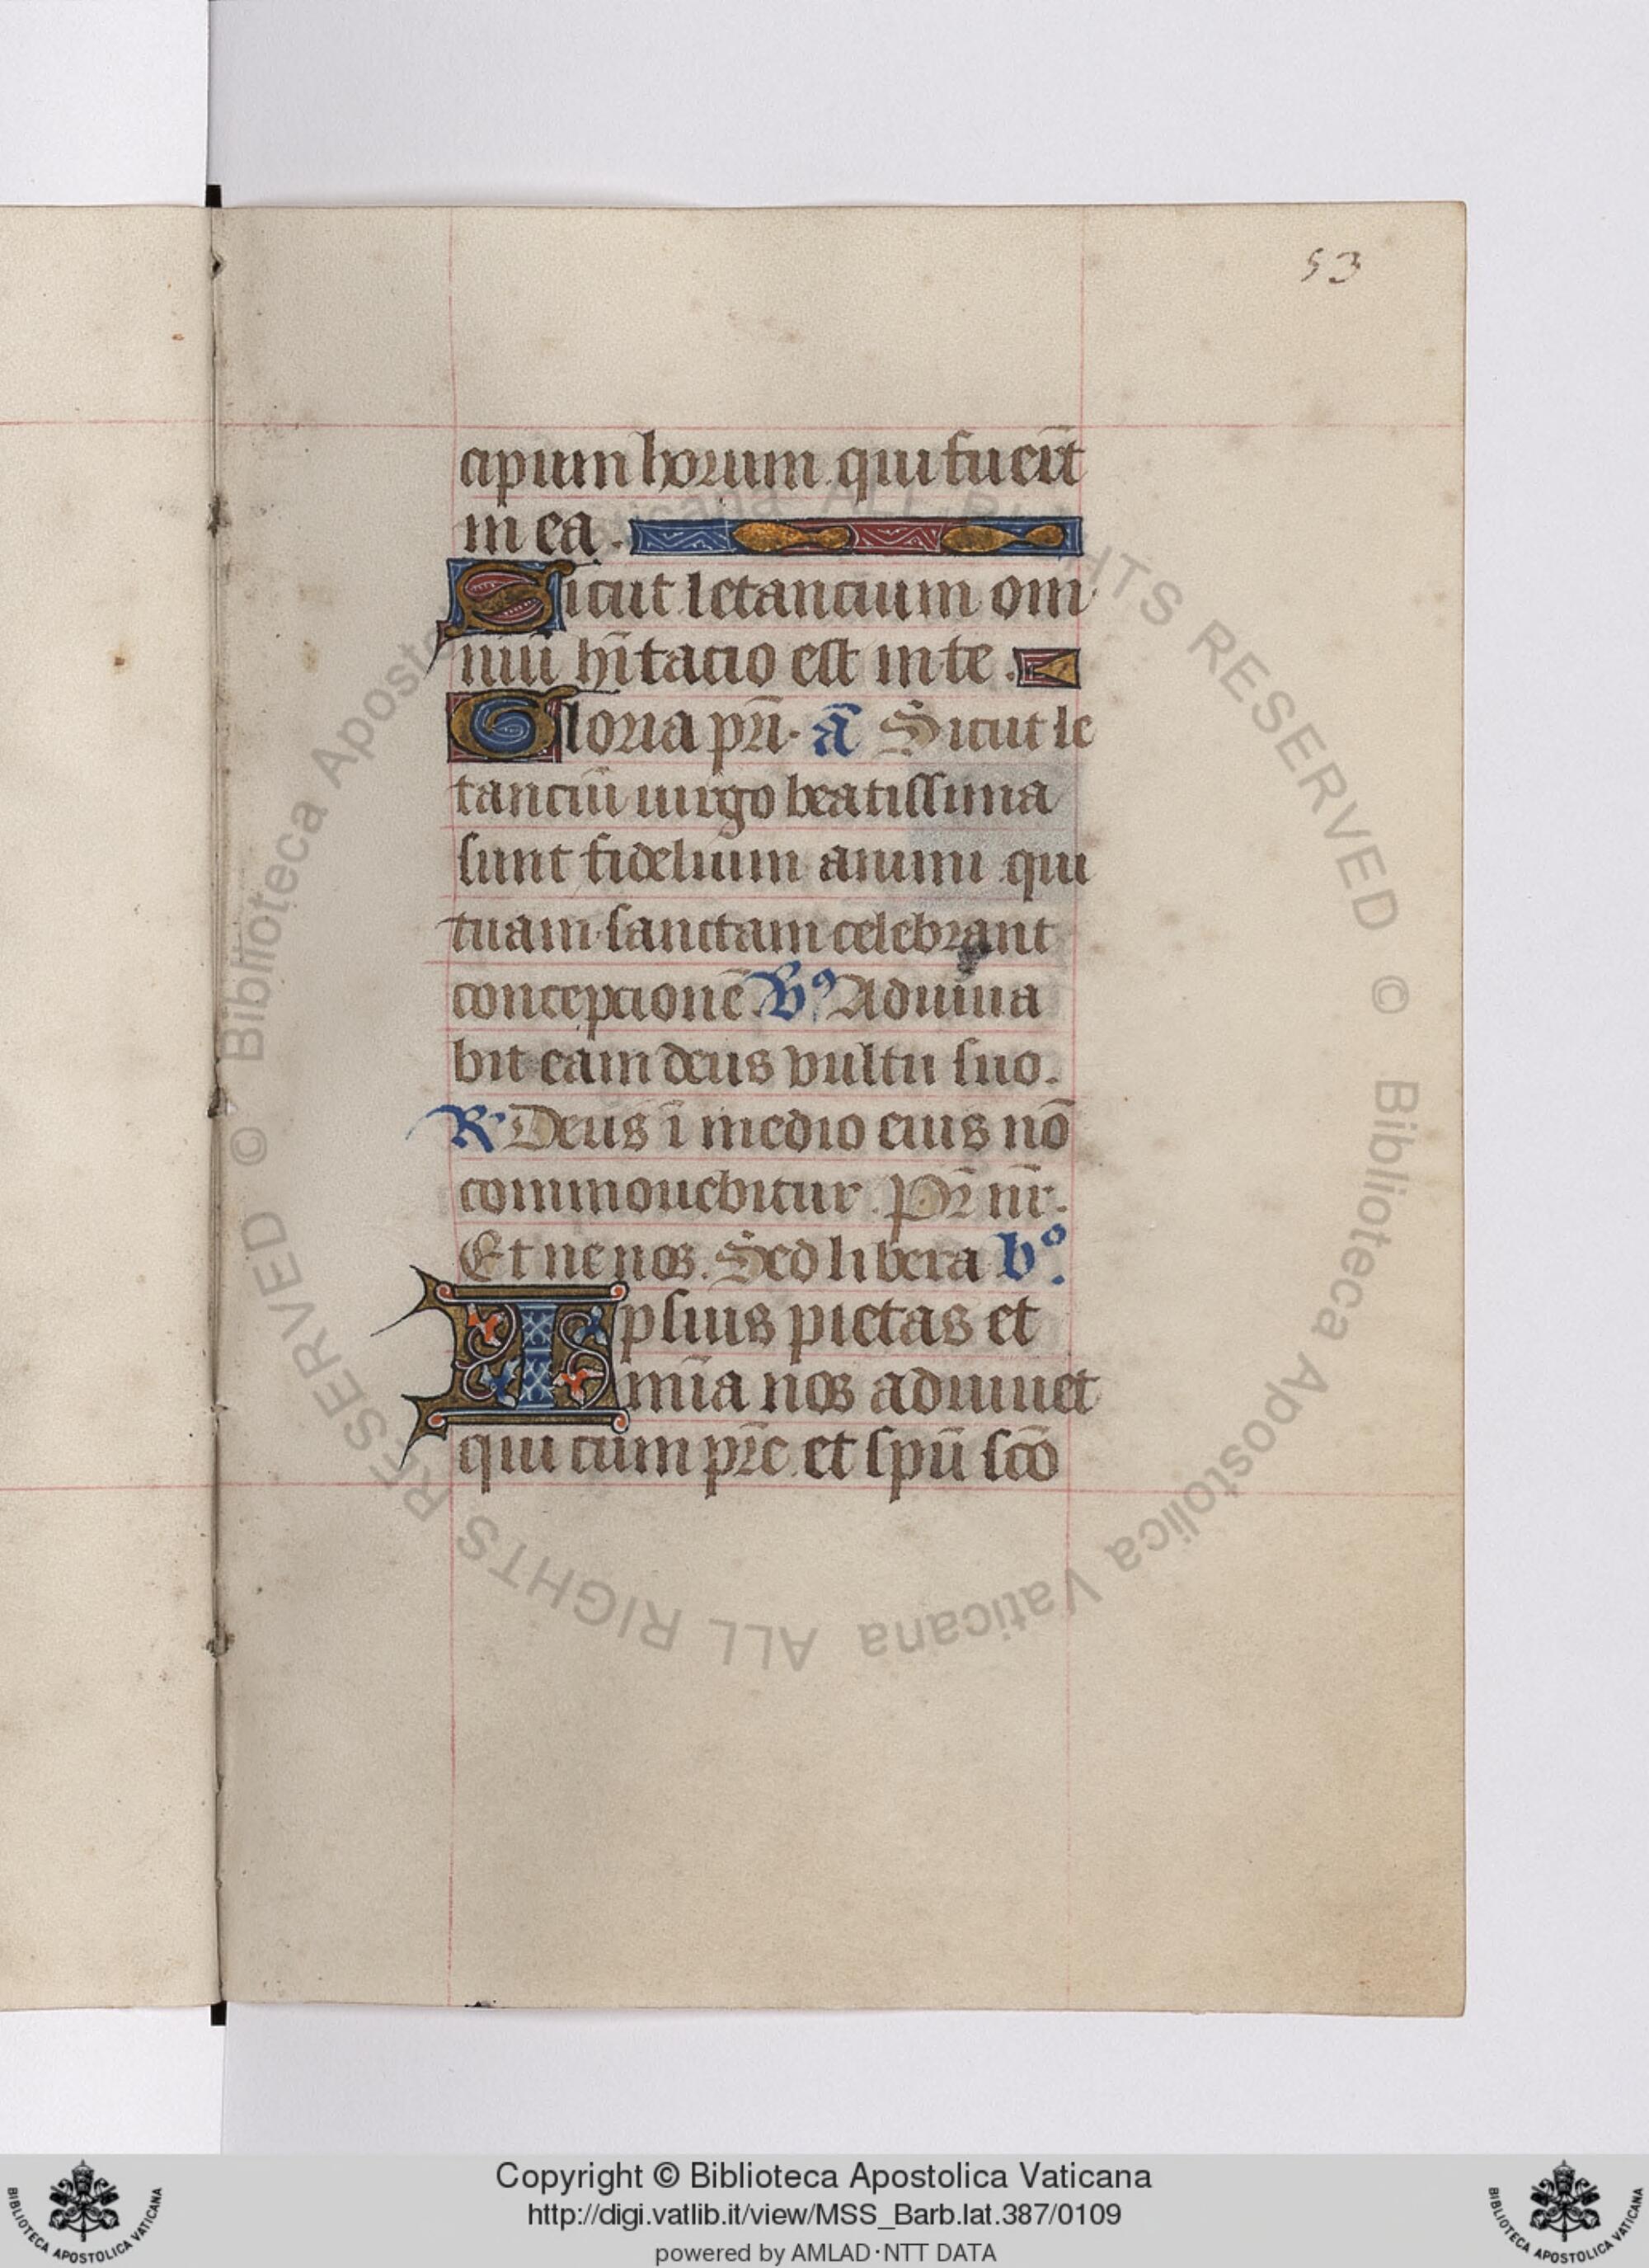 53
cipum horum qui fuerūt
in ea.
Sicut letancium om
niū hītacio est in te.
Gloria pr̄i. ā Sicut le
tanciū uirgo beatissima
sunt fidelium animi qui
tuam sanctam celebrant
concepcionē. Vꝰ Adiuua
bit eam deus vultu suo.
R Deus ī medio eius nō
commouebitur. Pr̄ nr̄.
Et ne nos. Sed libera bᵒ.
Ipsius pietas et
mīa nos adiuuet
qui cum pr̄e et spū scō
© Biblioteca Apostolica Vaticana ALL RIGHTS RESERVED
© Biblioteca Apostolica Vaticana ALL RIGHTS RESERVED
BIBLIOTECA APOSTOLICA VATICANA
Copyright © Biblioteca Apostolica Vaticana
http://digi.vatlib.it/view/MSS_Barb.lat.387/0109
powered by AMLAD·NTT DATA
BIBLIOTECA APOSTOLICA VATICANA